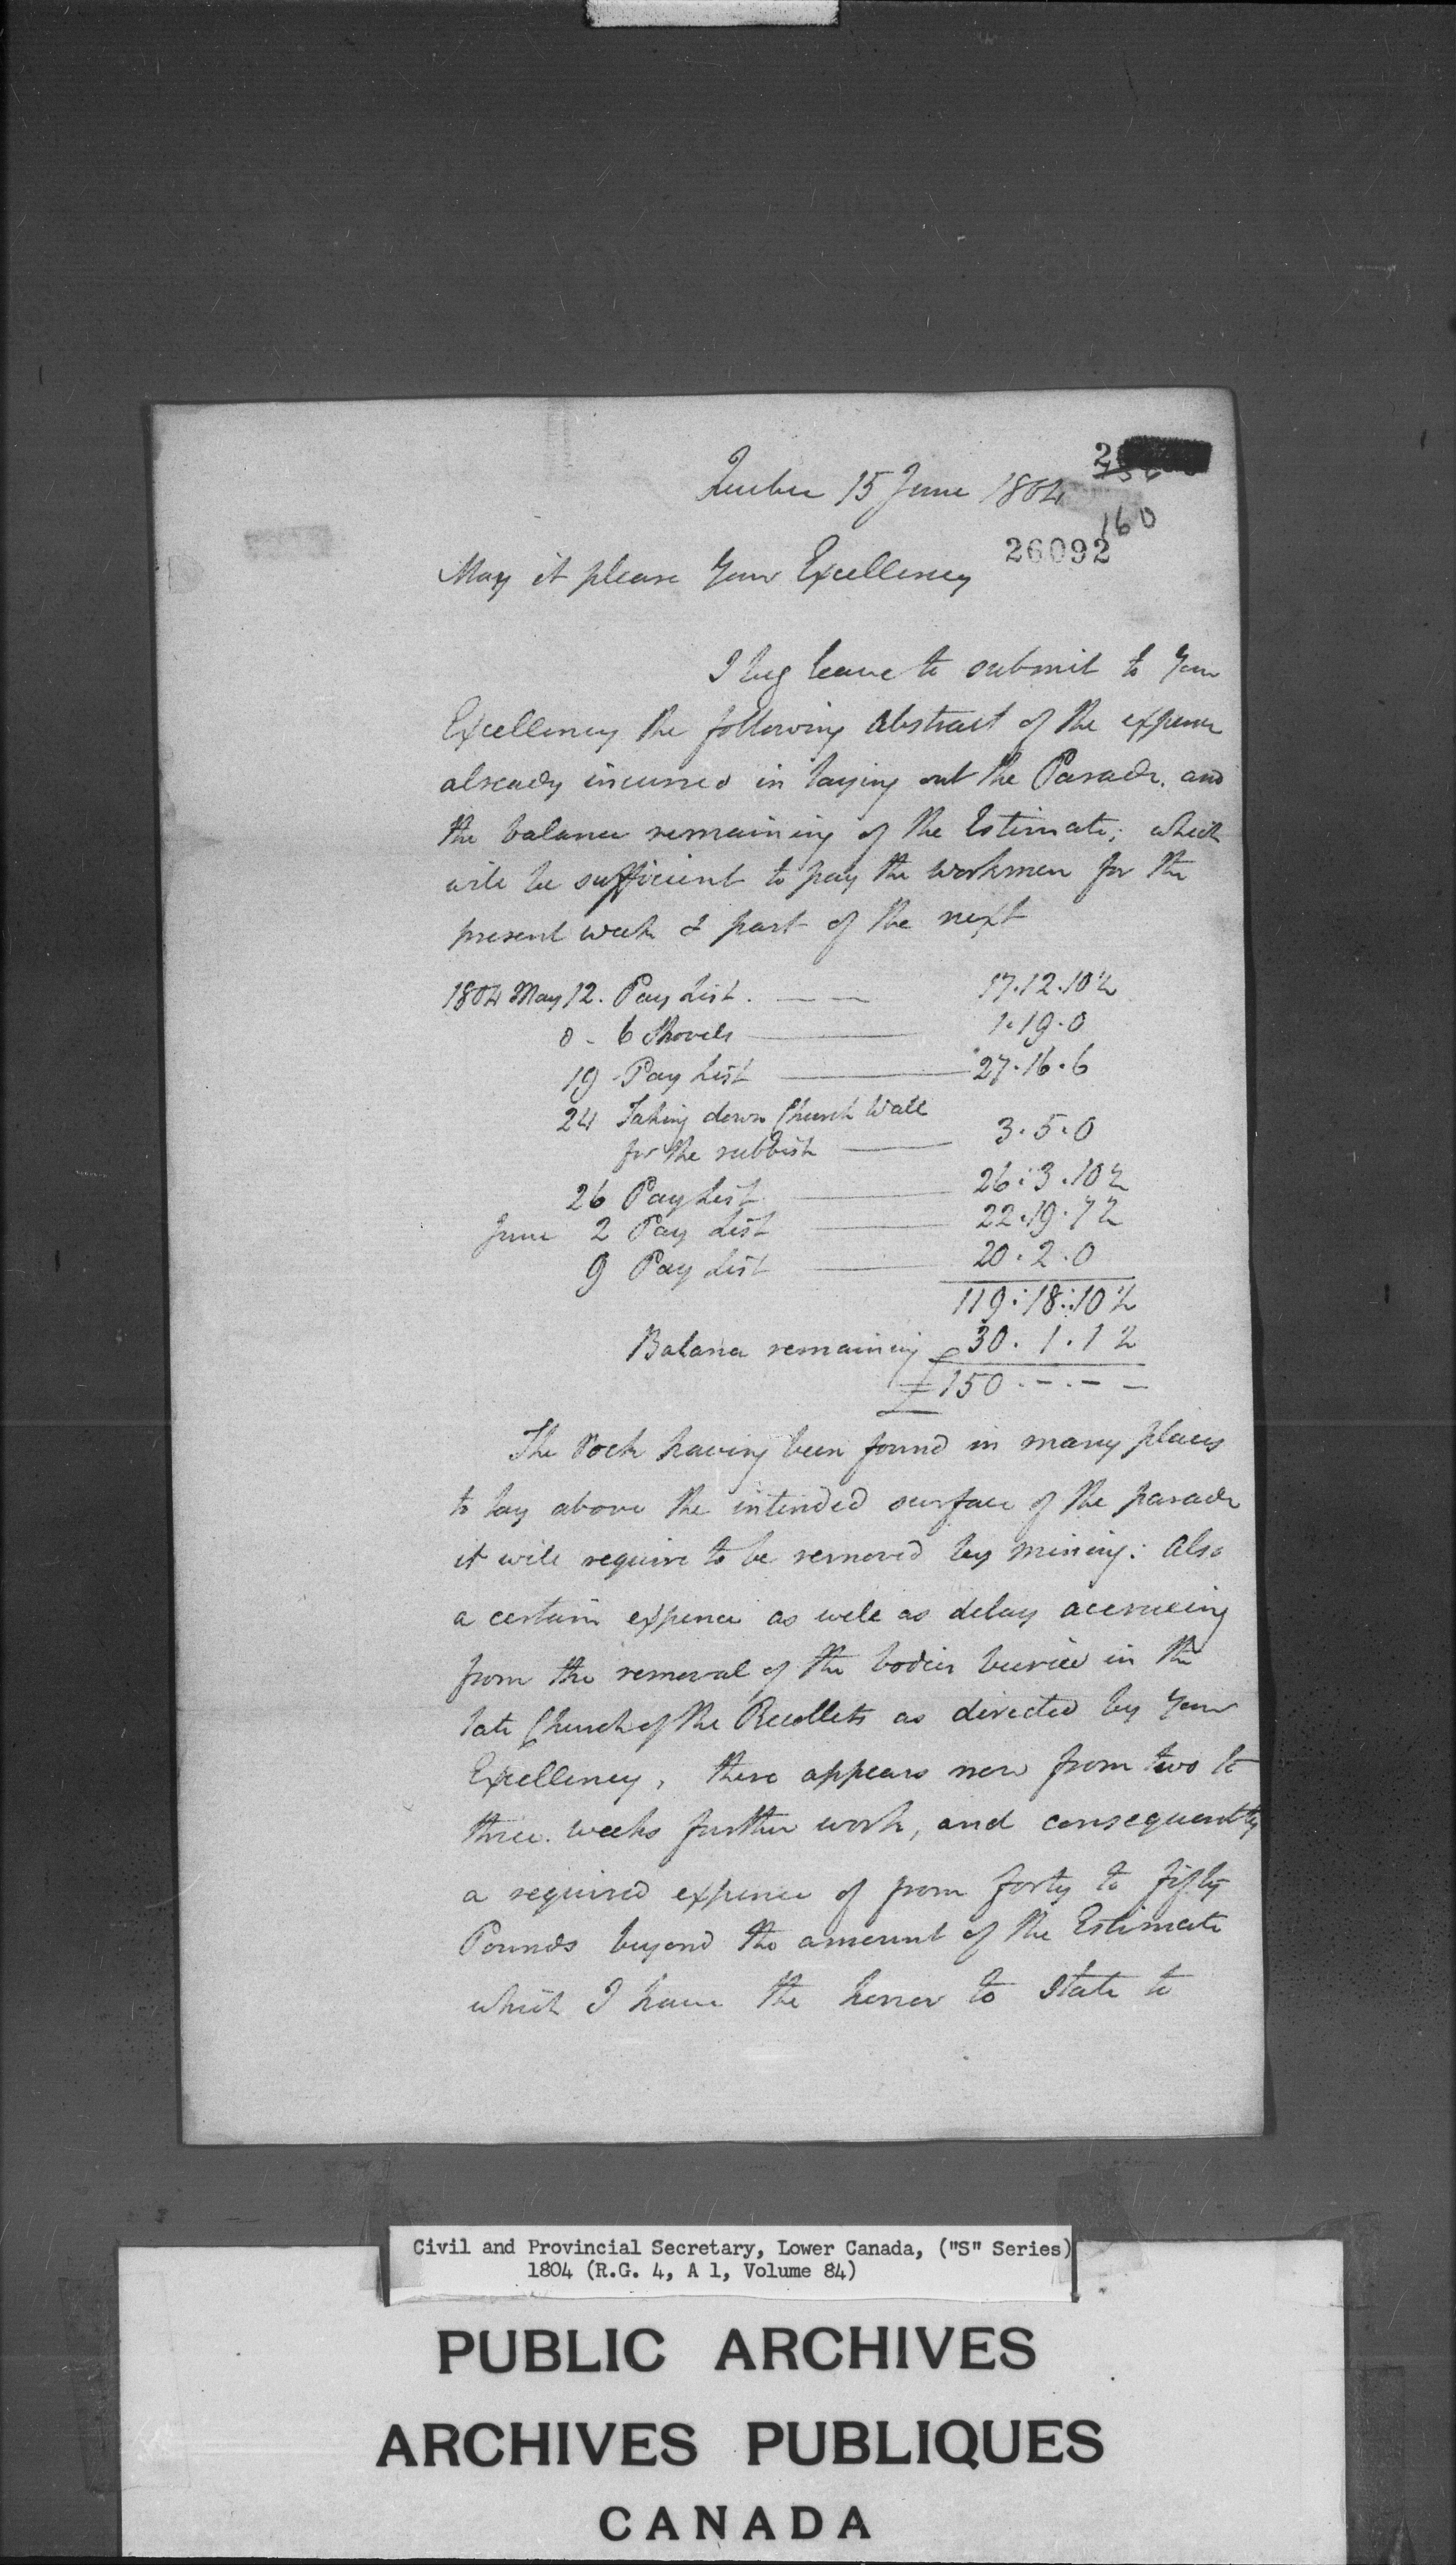 Quebec 15 June 1804
2
156
160
26092
May it please Your Excellency
I beg leave to submit to Your
Excellency the following Abstract of the expence
already incurred in laying out the Parade. and
the balance remaining of the Estimate; which
will be sufficient to pay the workmen for the
present week & part of the next
1804 May 12. Pay List. — — 17.12.10½
0 - 6 Shovels — 1.19.0
19 Pay List — 27.16.6
24 Taking down Church Wall
for the rubbish — 3.5.0
26 Pay List — 26:3.10½
June 2 Pay List — 22.19.7½
9 Pay List — 20.2.0
119:18:10½
Balance remaining 30.1.1½
£150.-.-.-
The Rock having been found in many places
to lay above the intended surface of the parade
it will require to be removed by mining: Also
a certain expence as well as delay accrueing
from the removal of the bodies buried in the
late Church of the Recollets as directed by Your
Excellency, there appears now from two to
three weeks further work, and consequently
a required expence of from forty to fifty
Pounds beyond the amount of the Estimate
which I have the honor to State to
Civil and Provincial Secretary, Lower Canada, ("S" Series)
1804 (R.G. 4, A 1, Volume 84)
PUBLIC ARCHIVES
ARCHIVES PUBLIQUES
CANADA